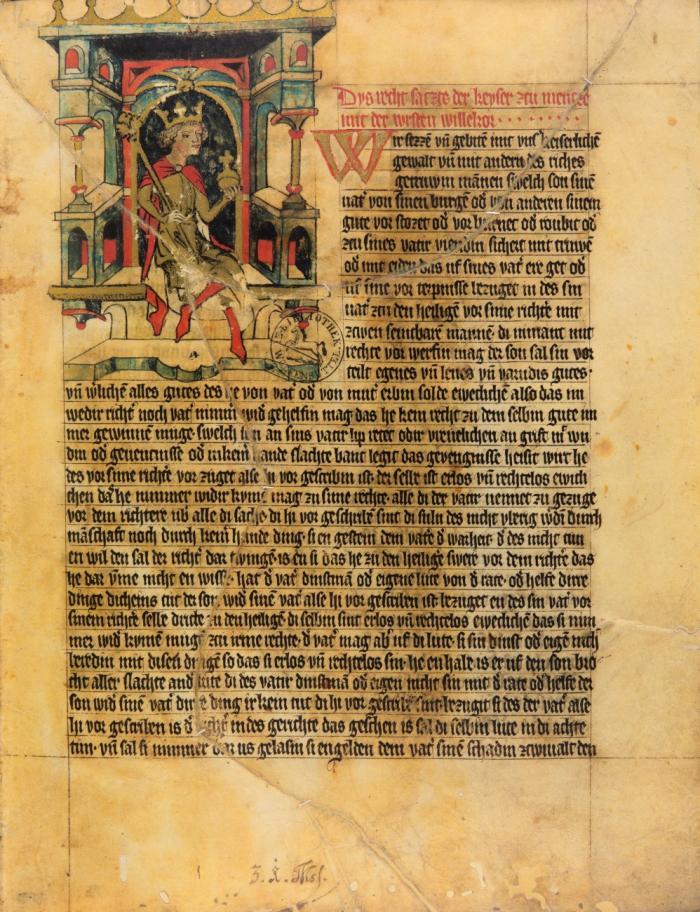 Dys recht saczte der keyser zcu mencze
mit der vursten willekor
Wir seczzē vn̄ gebitē mit vnsˈ keiserlichē
gewalt vn̄ mit andern des riches
getruwin mannen swelch son sinē
vatˈ von sinen burgē odˈ von anderen sinem
gute vor stozet odˈ vor burnet odˈ roubit odˈ
zcu sines vatir viendin sichert mit truwē
odˈ mit eiden das uf sines vatˈ ere get odˈ
vf sine vor terpnisse bezuget in des sin
vatˈ zcu den heiligē vor sime richtˈe mit
zcwen sembarē mannē di nimant mit
rechte vor werfin mag der son sal sin vor
teilt egenes vn̄ lenes vn̄ varndis gutes
vn̄ werlichē alles gutes des he von vatˈ odˈ von mutˈ erbin solde ewecliche also das im
wedir richtˈ noch vatˈ nimmˈ wid gehelfin mag das he kein recht zu dem selbin gute im
mer gewinne muge swelch son an sins vatir lip retet odir vreuelichen
din odˈ geuencnisse odˈ in keinˈ hande slachte bant legit das gevengnisse heisit wirt he
des vor sime richtˈe vor zuget alse hi vor gescribin ist der selle ist erlos vn̄ rechtelos ewich
chen das he nummer widir kvmē mag zu sime rechte alle di der vatir nennet zu gezuge
vor dem richtere ub alle di sache di hi vor geschribē sint di suln des nicht
manschaft noch durch keinˈ hande ding si en gesten dem vatˈe dˈ warheit dˈ des nicht tun
en wil den sal der richtˈ dar twingē is en si das he zu den heiligē swere vor dem richtˈe das
he dar vme nicht en wisse hat dˈ vatˈ dinstman odˈ eigene lute von dˈ rate odˈ helfe dirre
dinge dicheins tut der son wid sinē vatˈ alse hi vor gescriben ist bezuget en des sin vatˈ vor
sinem richtˈe selle dritte zu den heiligē di selbin sint erlos vn̄ rechtelos ewecliche das si nim
mer wid kvmē mugē zu irme rechte dˈ vatˈ mag ab uf di lute si sin dinst odˈ eigē nicht
beredin mit disen dingē so das si erlos vn̄ rechtelos sin he en habe is er uf den son
cht aller slachte ande lute di des vatir dinstman odˈ eigen nicht sin mit dˈ rate odˈ helfe der
son wid sinē vatˈ dirre ding ir kein tut di hi vor gescribē sint bezugit si des der vatˈ alse
hi vor gescriben is dˈ richtˈ in des gerichte das geschen is sal di selbin lute in di achte
tun vn̄ sal si nimmer dar us gelasin si engelden dem vatˈ sinē schadin zcwiualt den